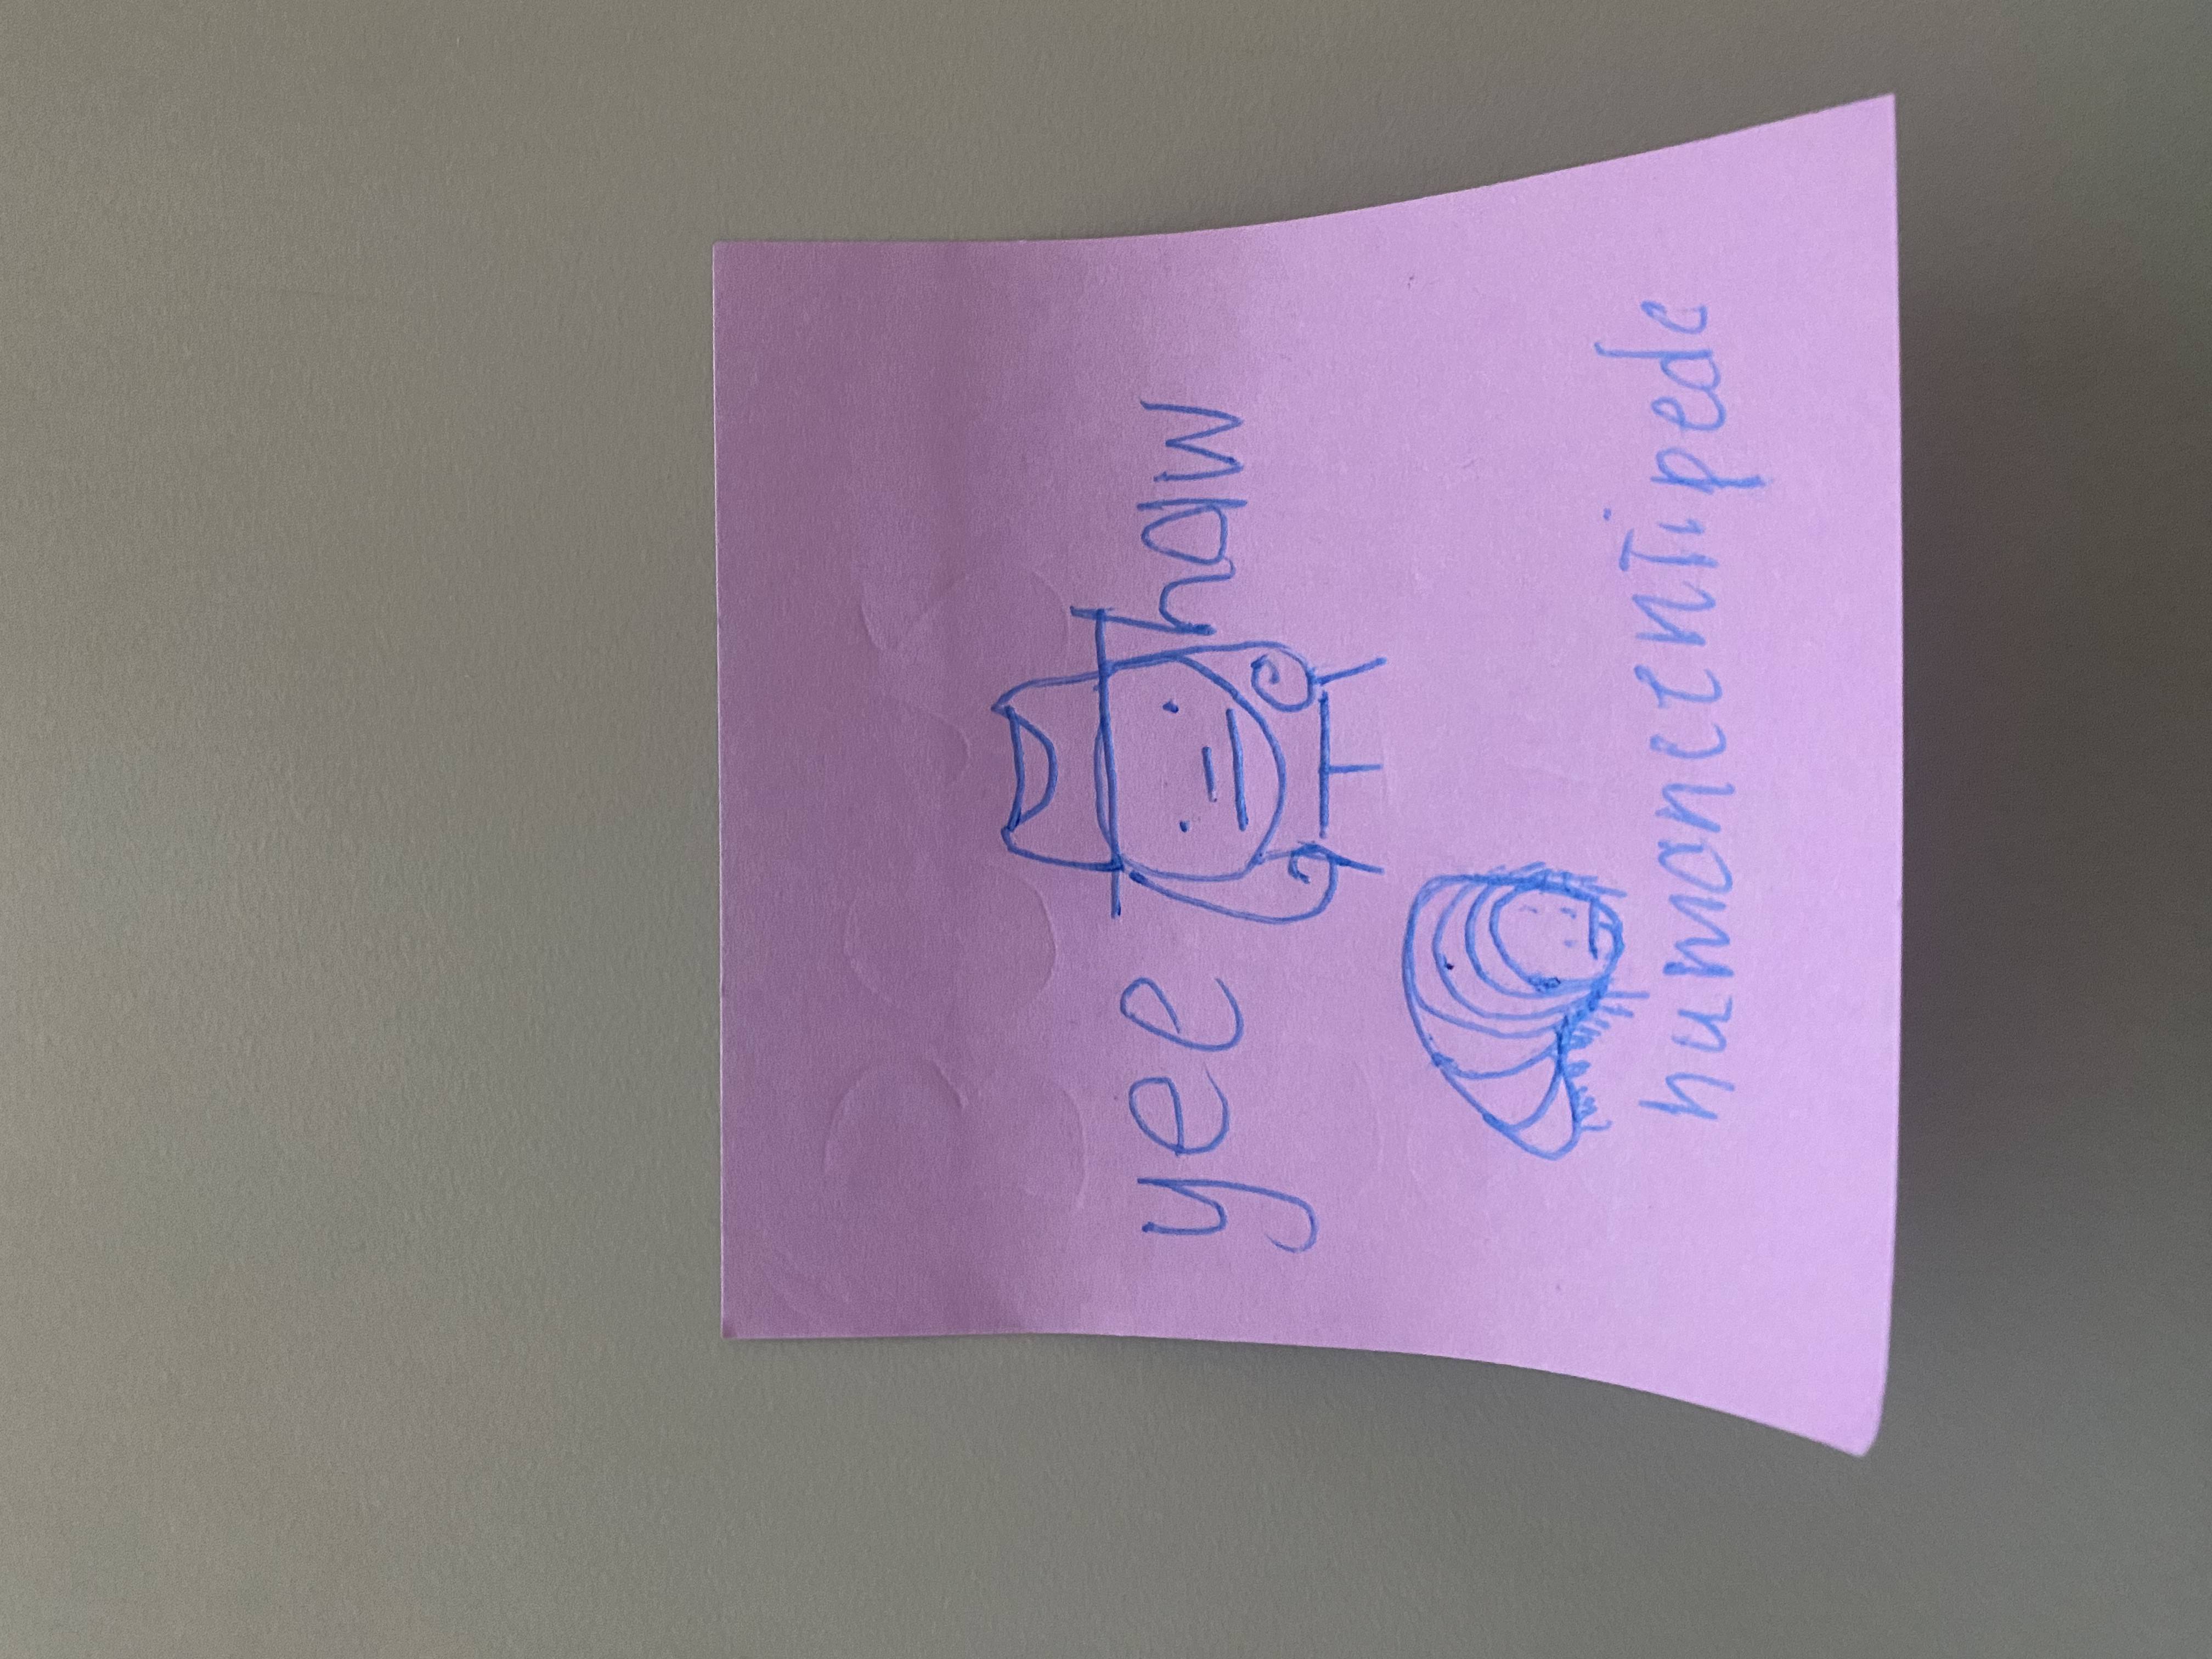 yee haw
humancentipede